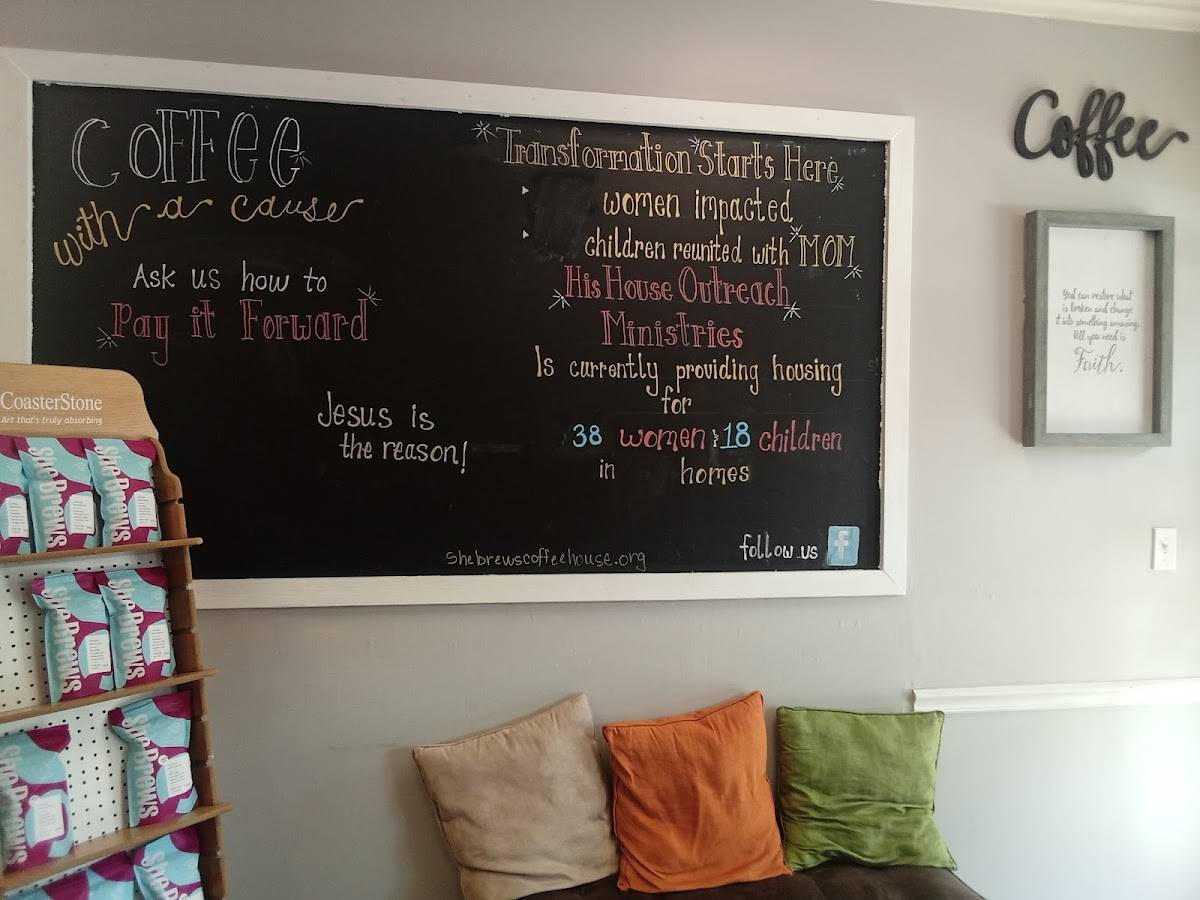 COFFEE
with a cause
Ask us how to
Pay it Forward
Jesus is
the reason!
Transformation Starts Here
women impacted
children reunited with MOM
His House Outreach
Ministries
Is currently providing housing
for
38 women & 18 children
in homes
shebrewscoffeehouse.org
follow us f
Coffee
God can restore what
is broken and change
it into something amazing.
All you need is
Faith.
CoasterStone
Art that's truly absorbing
SheBrews
SheBrews
SheBrews
SheBrews
SheBrews
SheBrews
SheBrews
SheBrews